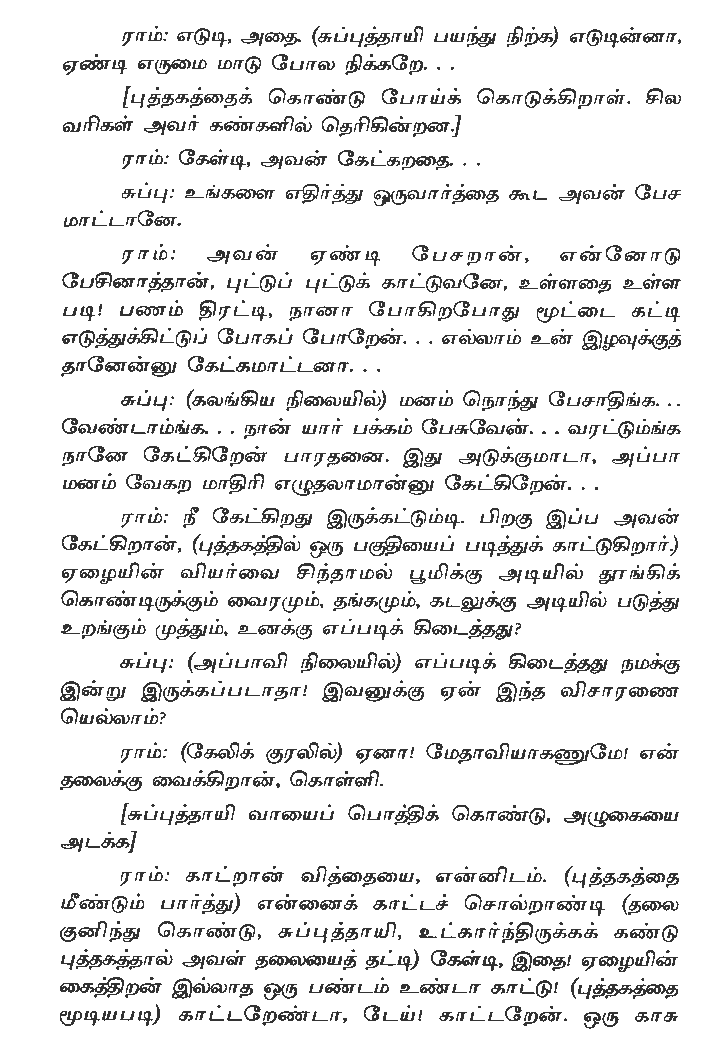 ராம்: எடுடி, அதை. (சுப்புத்தாயி பயந்து நிற்க) எடுடின்னா,
ஏண்டி எருமை மாடு போல நிக்கறே. . .
[புத்தகத்தைக் கொண்டு போய்க் கொடுக்கிறாள். சில
வரிகள் அவர் கண்களில் தெரிகின்றன.]
ராம்: கேள்டி, அவன் கேட்கறதை. . .
சுப்பு: உங்களை எதிர்த்து ஒருவார்த்தை கூட அவன் பேச
மாட்டானே.
ராம்: அவன் ஏண்டி பேசறான், என்னோடு
பேசினாத்தான், புட்டுப் புட்டுக் காட்டுவனே, உள்ளதை உள்ள
படி! பணம் திரட்டி, நானா போகிறபோது மூட்டை கட்டி
எடுத்துக்கிட்டுப் போகப் போறேன். . . எல்லாம் உன் இழவுக்குத்
தானேன்னு கேட்கமாட்டனா. . .
சுப்பு: (கலங்கிய நிலையில்) மனம் நொந்து பேசாதிங்க. . .
வேண்டாம்ங்க. . . நான் யார் பக்கம் பேசுவேன். . . வரட்டும்ங்க
நானே கேட்கிறேன் பாரதனை. இது அடுக்குமாடா, அப்பா
மனம் வேகற மாதிரி எழுதலாமான்னு கேட்கிறேன். . .
ராம்: நீ கேட்கிறது இருக்கட்டும்டி. பிறகு இப்ப அவன்
கேட்கிறான், (புத்தகத்தில் ஒரு பகுதியைப் படித்துக் காட்டுகிறார்.)
ஏழையின் வியர்வை சிந்தாமல் பூமிக்கு அடியில் தூங்கிக்
கொண்டிருக்கும் வைரமும், தங்கமும், கடலுக்கு அடியில் படுத்து
உறங்கும் முத்தும், உனக்கு எப்படிக் கிடைத்தது?
சுப்பு: (அப்பாவி நிலையில்) எப்படிக் கிடைத்தது நமக்கு
இன்று இருக்கப்படாதா! இவனுக்கு ஏன் இந்த விசாரணை
யெல்லாம்?
ராம்: (கேலிக் குரலில்) ஏனா! மேதாவியாகணுமே! என்
தலைக்கு வைக்கிறான், கொள்ளி.
[சுப்புத்தாயி வாயைப் பொத்திக் கொண்டு, அழுகையை
அடக்க]
ராம்: காட்றான் வித்தையை, என்னிடம். (புத்தகத்தை
மீண்டும் பார்த்து) என்னைக் காட்டச் சொல்றாண்டி (தலை
குனிந்து கொண்டு, சுப்புத்தாயி, உட்கார்ந்திருக்கக் கண்டு
புத்தகத்தால் அவள் தலையைத் தட்டி) கேள்டி, இதை! ஏழையின்
கைத்திறன் இல்லாத ஒரு பண்டம் உண்டா காட்டு! (புத்தகத்தை
மூடியபடி) காட்டறேண்டா, டேய்! காட்டறேன். ஒரு காசு